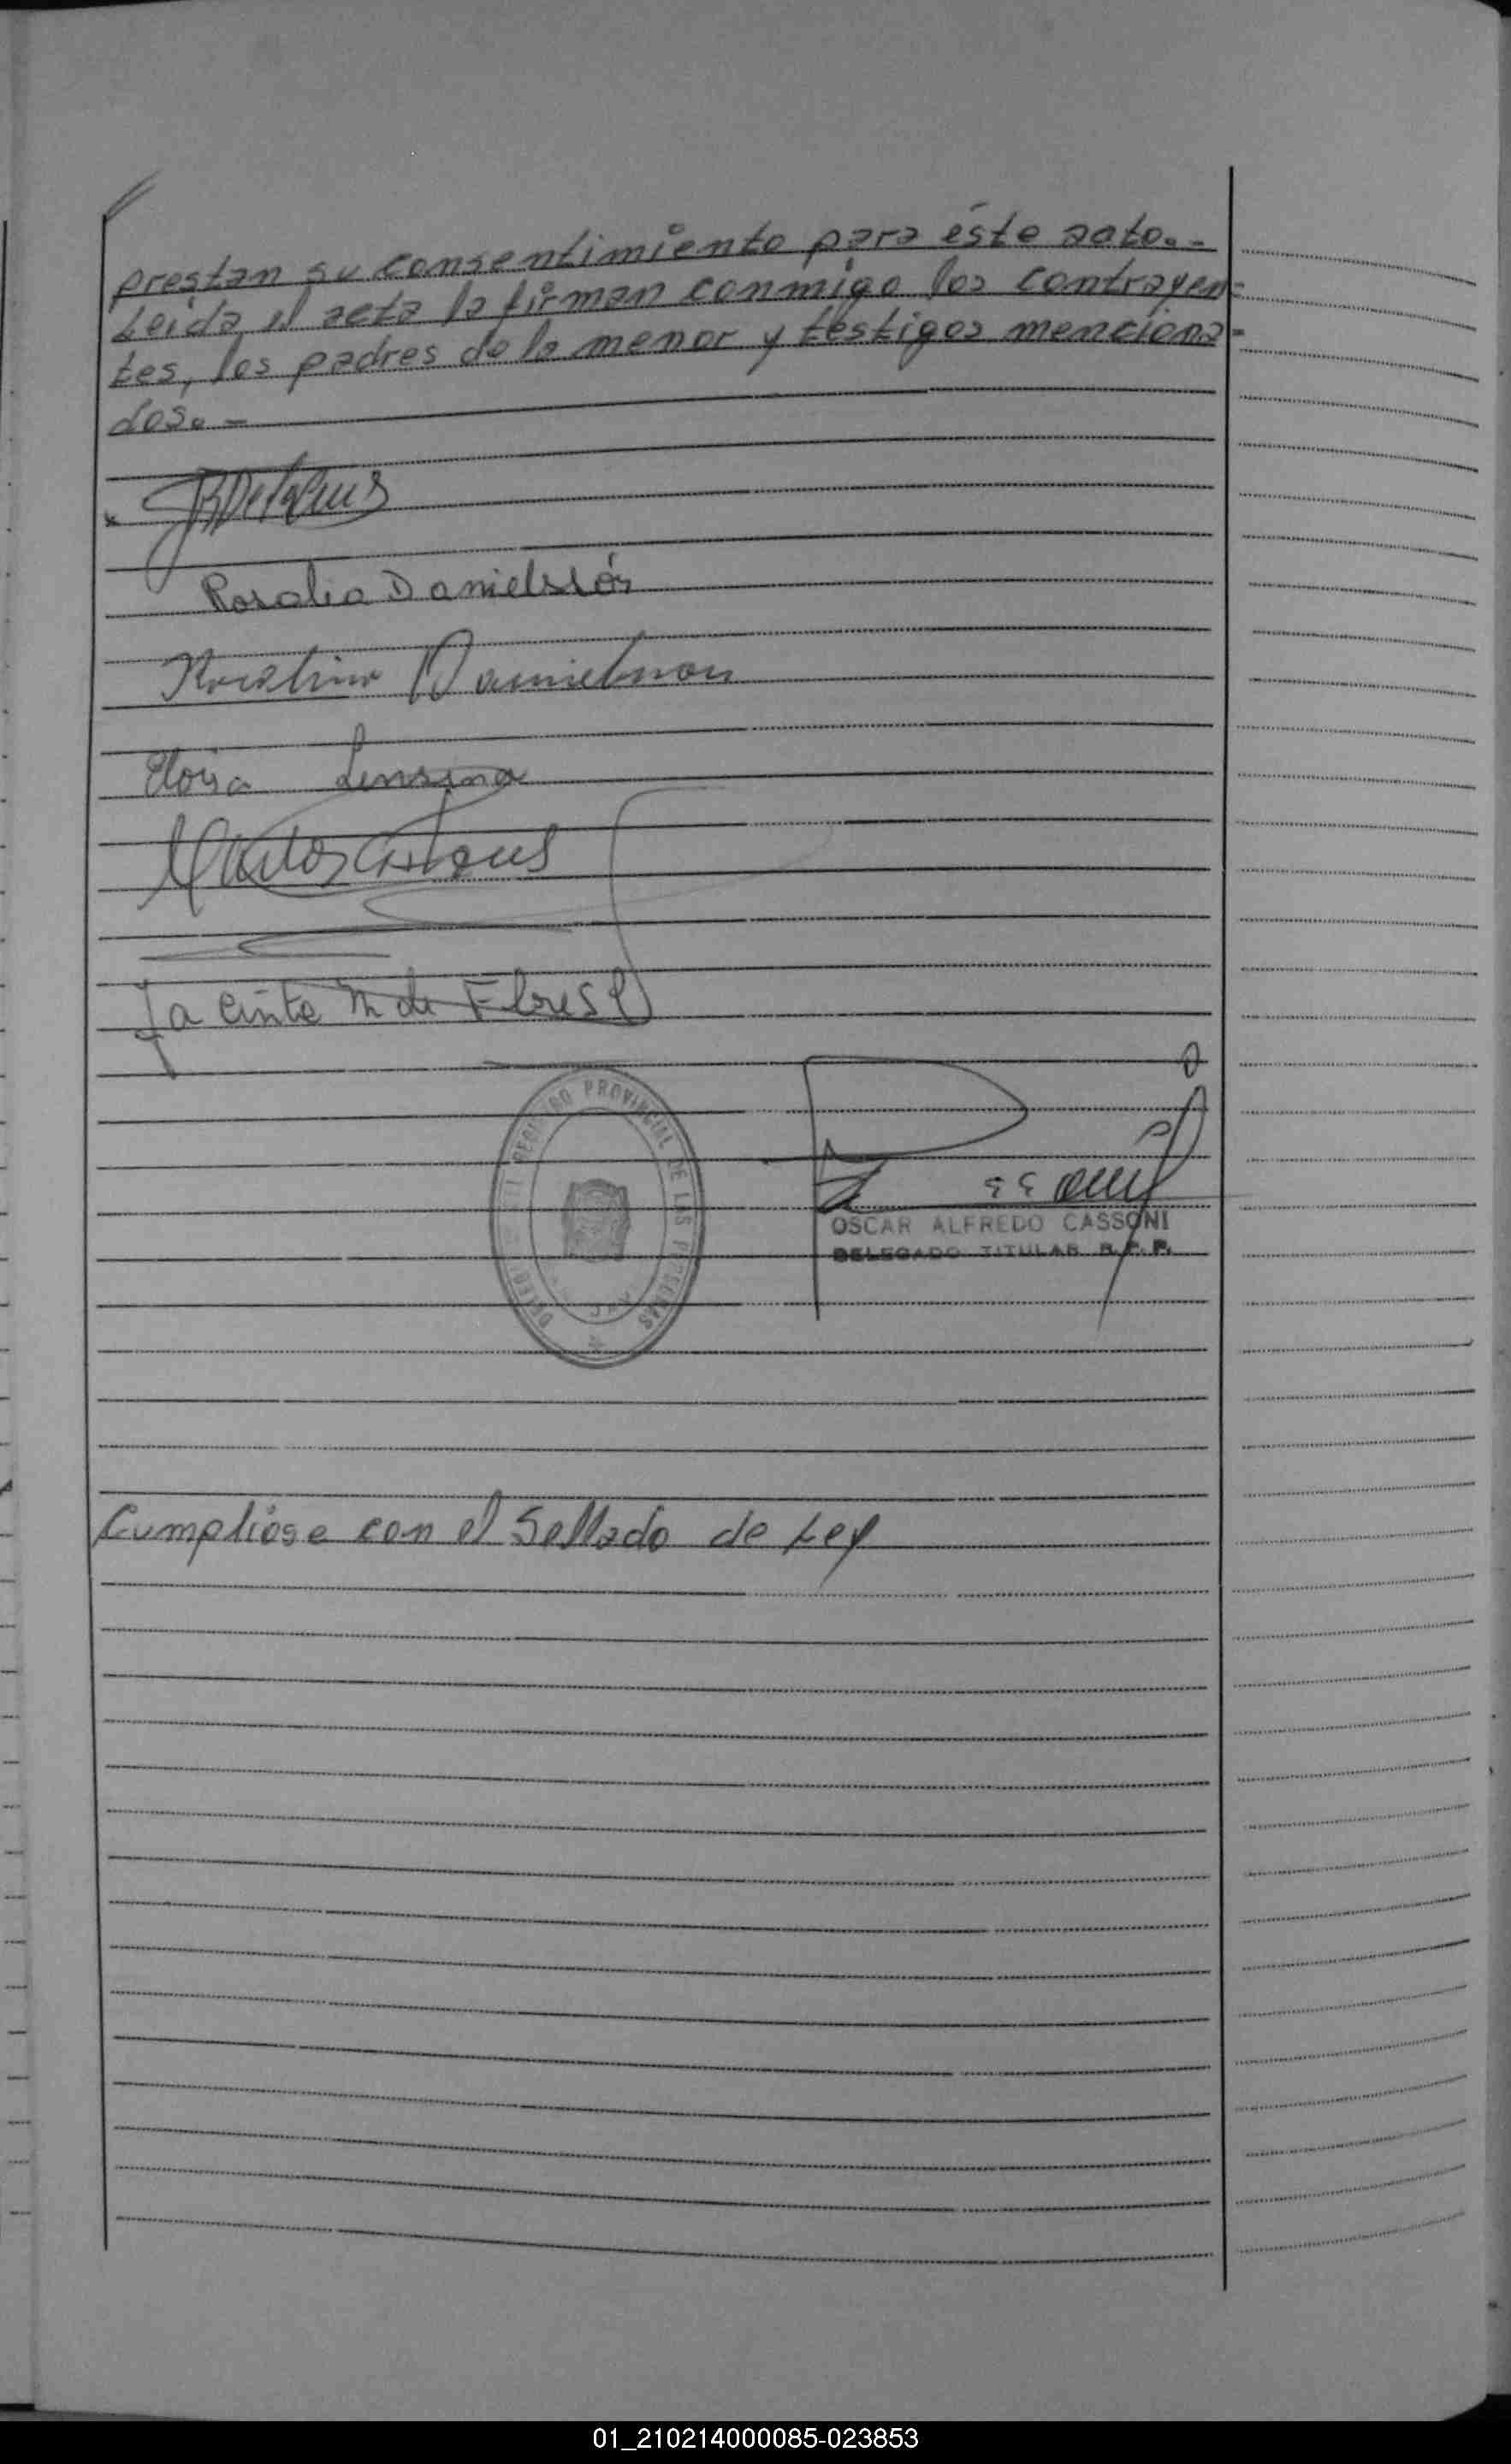 prestan su consentimiento para éste acto.-
Leida el acta la firman conmigo los contrayen=
tes, los padres de la menor y testigos menciona=
dos.-
Rosalia Danielsson
Danielsson
Eloisa Lensina
Carlos
Jacinta M de Flores
REGISTRO PROVINCIAL DE LAS PERSONAS
OSCAR ALFREDO CASSONI
DELEGADO TITULAR R.P.P.
Cumplióse con el Sellado de Ley
01_210214000085-023853